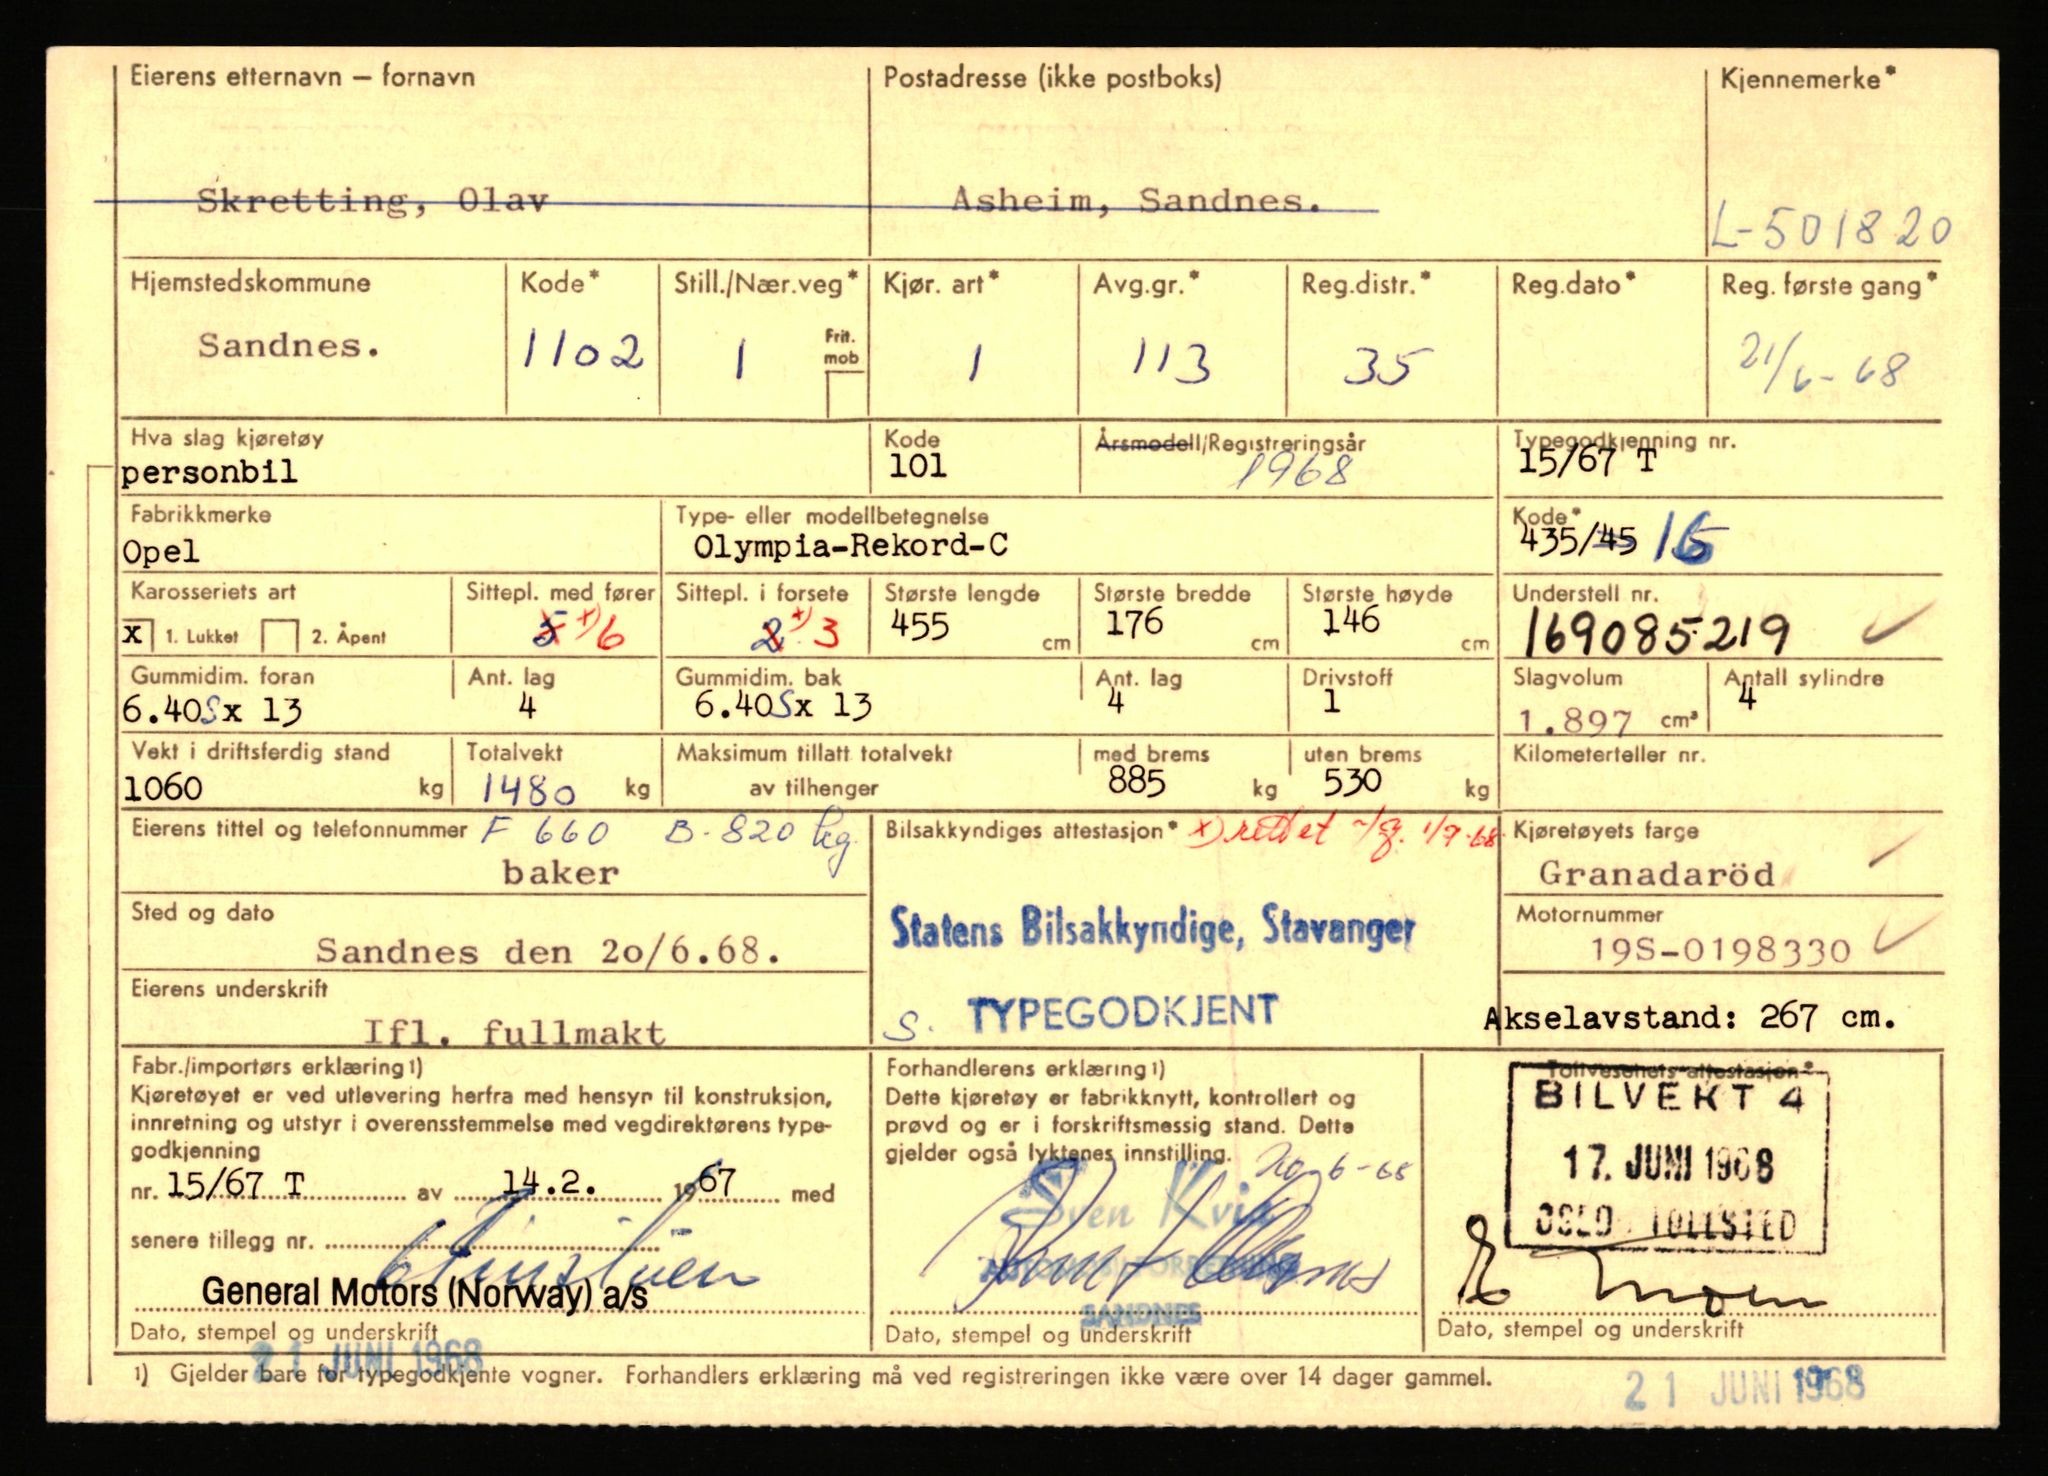 Eierens etternavn — fornavn
Postadresse (ikke postboks)
Kjennemerke*
Skretting, Olav
Asheim, Sandnes.
L-501820
Hjemstedskommune
Kode*
Still./Nær.veg*
Kjør. art*
Avg.gr.*
Reg.distr.*
Reg.dato*
Reg. første gang*
Sandnes.
1102
1
Frit. mob
1
113
35
21/6-68
Hva slag kjøretøy
Kode
Årsmodell/Registreringsår
Typegodkjenning nr.
personbil
101
1968
15/67 T
Fabrikkmerke
Type- eller modellbetegnelse
Kode*
Opel
Olympia-Rekord-C
435/45 16
Karosseriets art
Sittepl. med fører
Sittepl. i forsete
Største lengde
Største bredde
Største høyde
Understell nr.
x 1. Lukket 2. Åpent
5 x) 6
2 x) 3
455 cm
176 cm
146 cm
169085219
Gummidim. foran
Ant. lag
Gummidim. bak
Ant. lag
Drivstoff
Slagvolum
Antall sylindre
6.40S x 13
4
6.40S x 13
4
1
1.897 cm³
4
Vekt i driftsferdig stand
Totalvekt
Maksimum tillatt totalvekt
med brems
uten brems
Kilometerteller nr.
1060 kg
1480 kg
av tilhenger
885 kg
530 kg
Eierens tittel og telefonnummer F 660 B-820 kg
Bilsakkyndiges attestasjon* x) rettet 1/9-68
Kjøretøyets farge
baker
Granadaröd
Sted og dato
Statens Bilsakkyndige, Stavanger
Motornummer
Sandnes den 2o/6.68.
19S-0198330
Eierens underskrift
S. TYPEGODKJENT
Akselavstand: 267 cm.
Ifl. fullmakt
Fabr./importørs erklæring 1)
Forhandlerens erklæring 1)
Tollvesenets attestasjon*
Kjøretøyet er ved utlevering herfra med hensyn til konstruksjon,
innretning og utstyr i overensstemmelse med vegdirektørens type-
godkjenning
nr. 15/67 T av 14.2. 1967 med
senere tillegg nr.
Dette kjøretøy er fabrikknytt, kontrollert og
prøvd og er i forskriftsmessig stand. Dette
gjelder også lyktenes innstilling.
BILVEKT 4
17. JUNI 1968
OSLO TOLLSTED
Sven Kvia
AUTOMOBILFORRETNING
SANDNES
General Motors (Norway) a/s
E Moen
Dato, stempel og underskrift
Dato, stempel og underskrift
Dato, stempel og underskrift
21 JUNI 1968
1) Gjelder bare for typegodkjente vogner. Forhandlers erklæring må ved registreringen ikke være over 14 dager gammel.
21 JUNI 1968